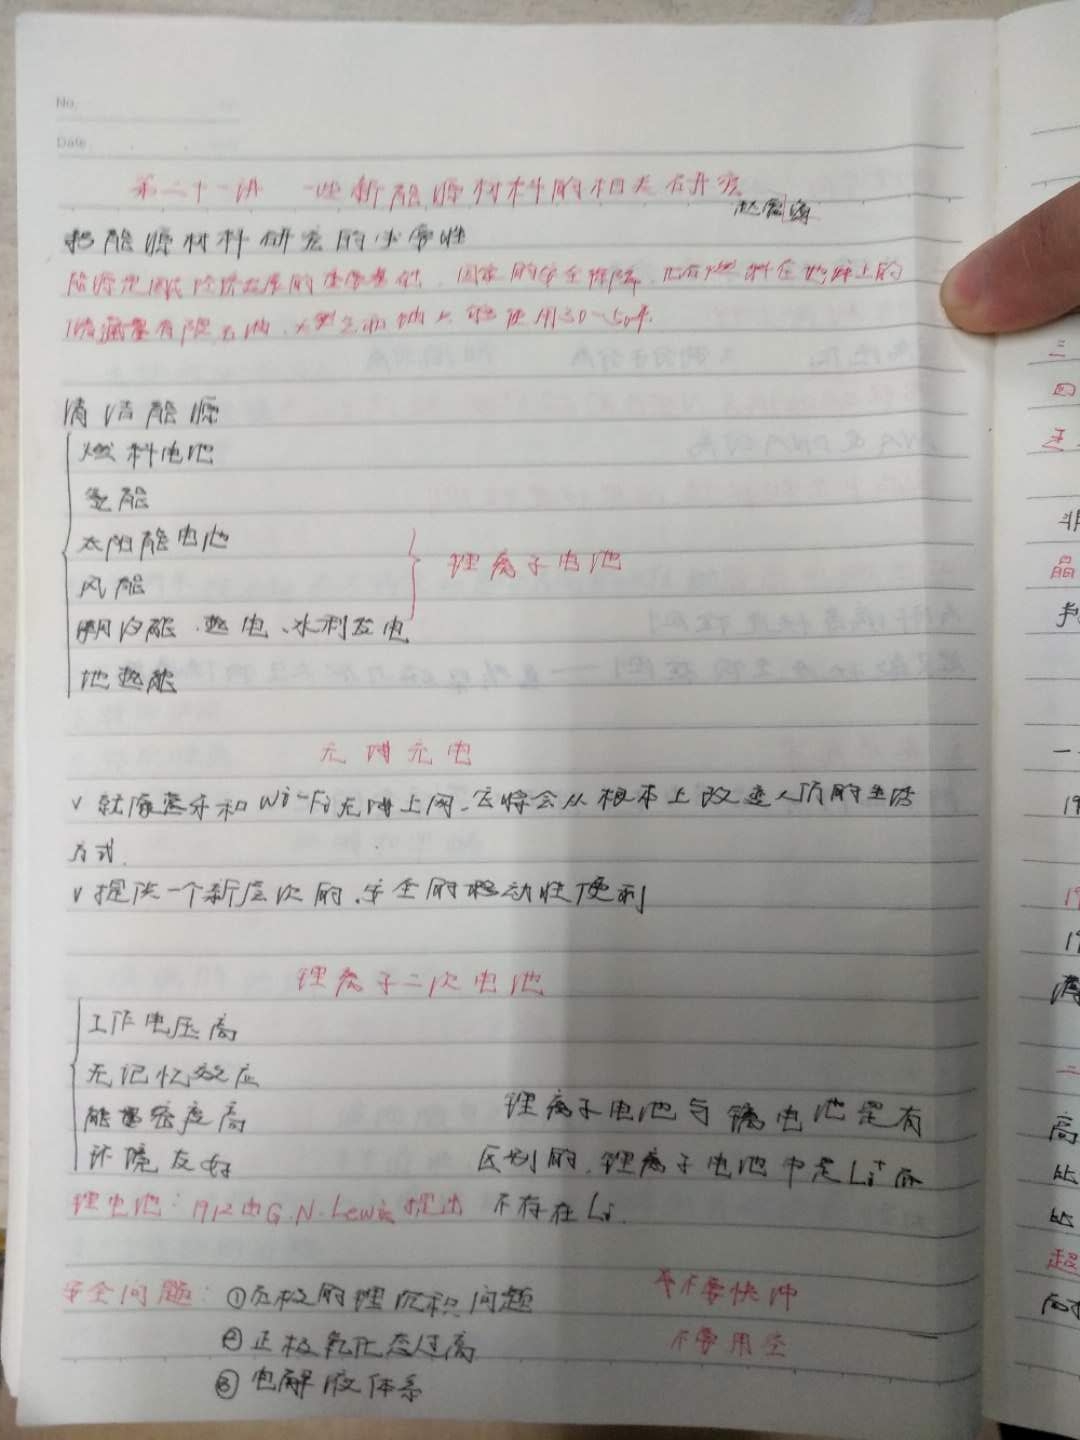 No.
Date
第二十一讲 一些新能源材料的相关研究
能源材料研究的必要性
能源是国民经济发展的重要基础、国家的安全保障,化石燃料在地球上的
储藏量有限石油、天然气和油只能使用30~50年.
清洁能源
燃料电池
氢能
太阳能电池
风能
锂离子电池
潮汐能、热电、水利发电
地热能
无线充电
√ 就像蓝牙和Wi-Fi无线上网,它将会从根本上改变人们的生活
方式.
√ 提供一个新层次的、安全的移动性便利
锂离子二次电池
工作电压高
无记忆效应
能量密度高
锂离子电池与锂电池是有
环境友好
区别的,锂离子电池中是Li⁺而
锂电池:1912由G.N.Lewis提出
不存在Li.
安全问题:①负极的锂沉积问题
不要快冲
②正极氧化态过高
不要用空
③电解液体系
三
四
非
晶
一
二
高
比
比
超